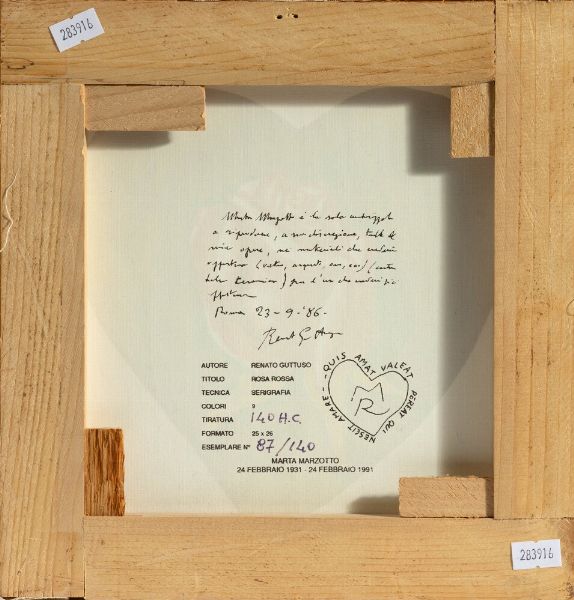 283916
Marta Marzotto è la sola autorizzata
a riprodurre, a sua discrezione, tutte le
mie opere, nei materiali che crederà
opportuno (
ceramica) per l'uso che crederà più
opportuno
Roma 23-9-'86-
AUTORE RENATO GUTTUSO
TITOLO ROSA ROSSA
TECNICA SERIGRAFIA
COLORI 9
TIRATURA 140 H.C.
FORMATO 25 x 26
ESEMPLARE N° 87/140
QUIS AMAT VALEAT PEREAT QUI NESCIT AMARE
MR
MARTA MARZOTTO
24 FEBBRAIO 1931 - 24 FEBBRAIO 1991
283916